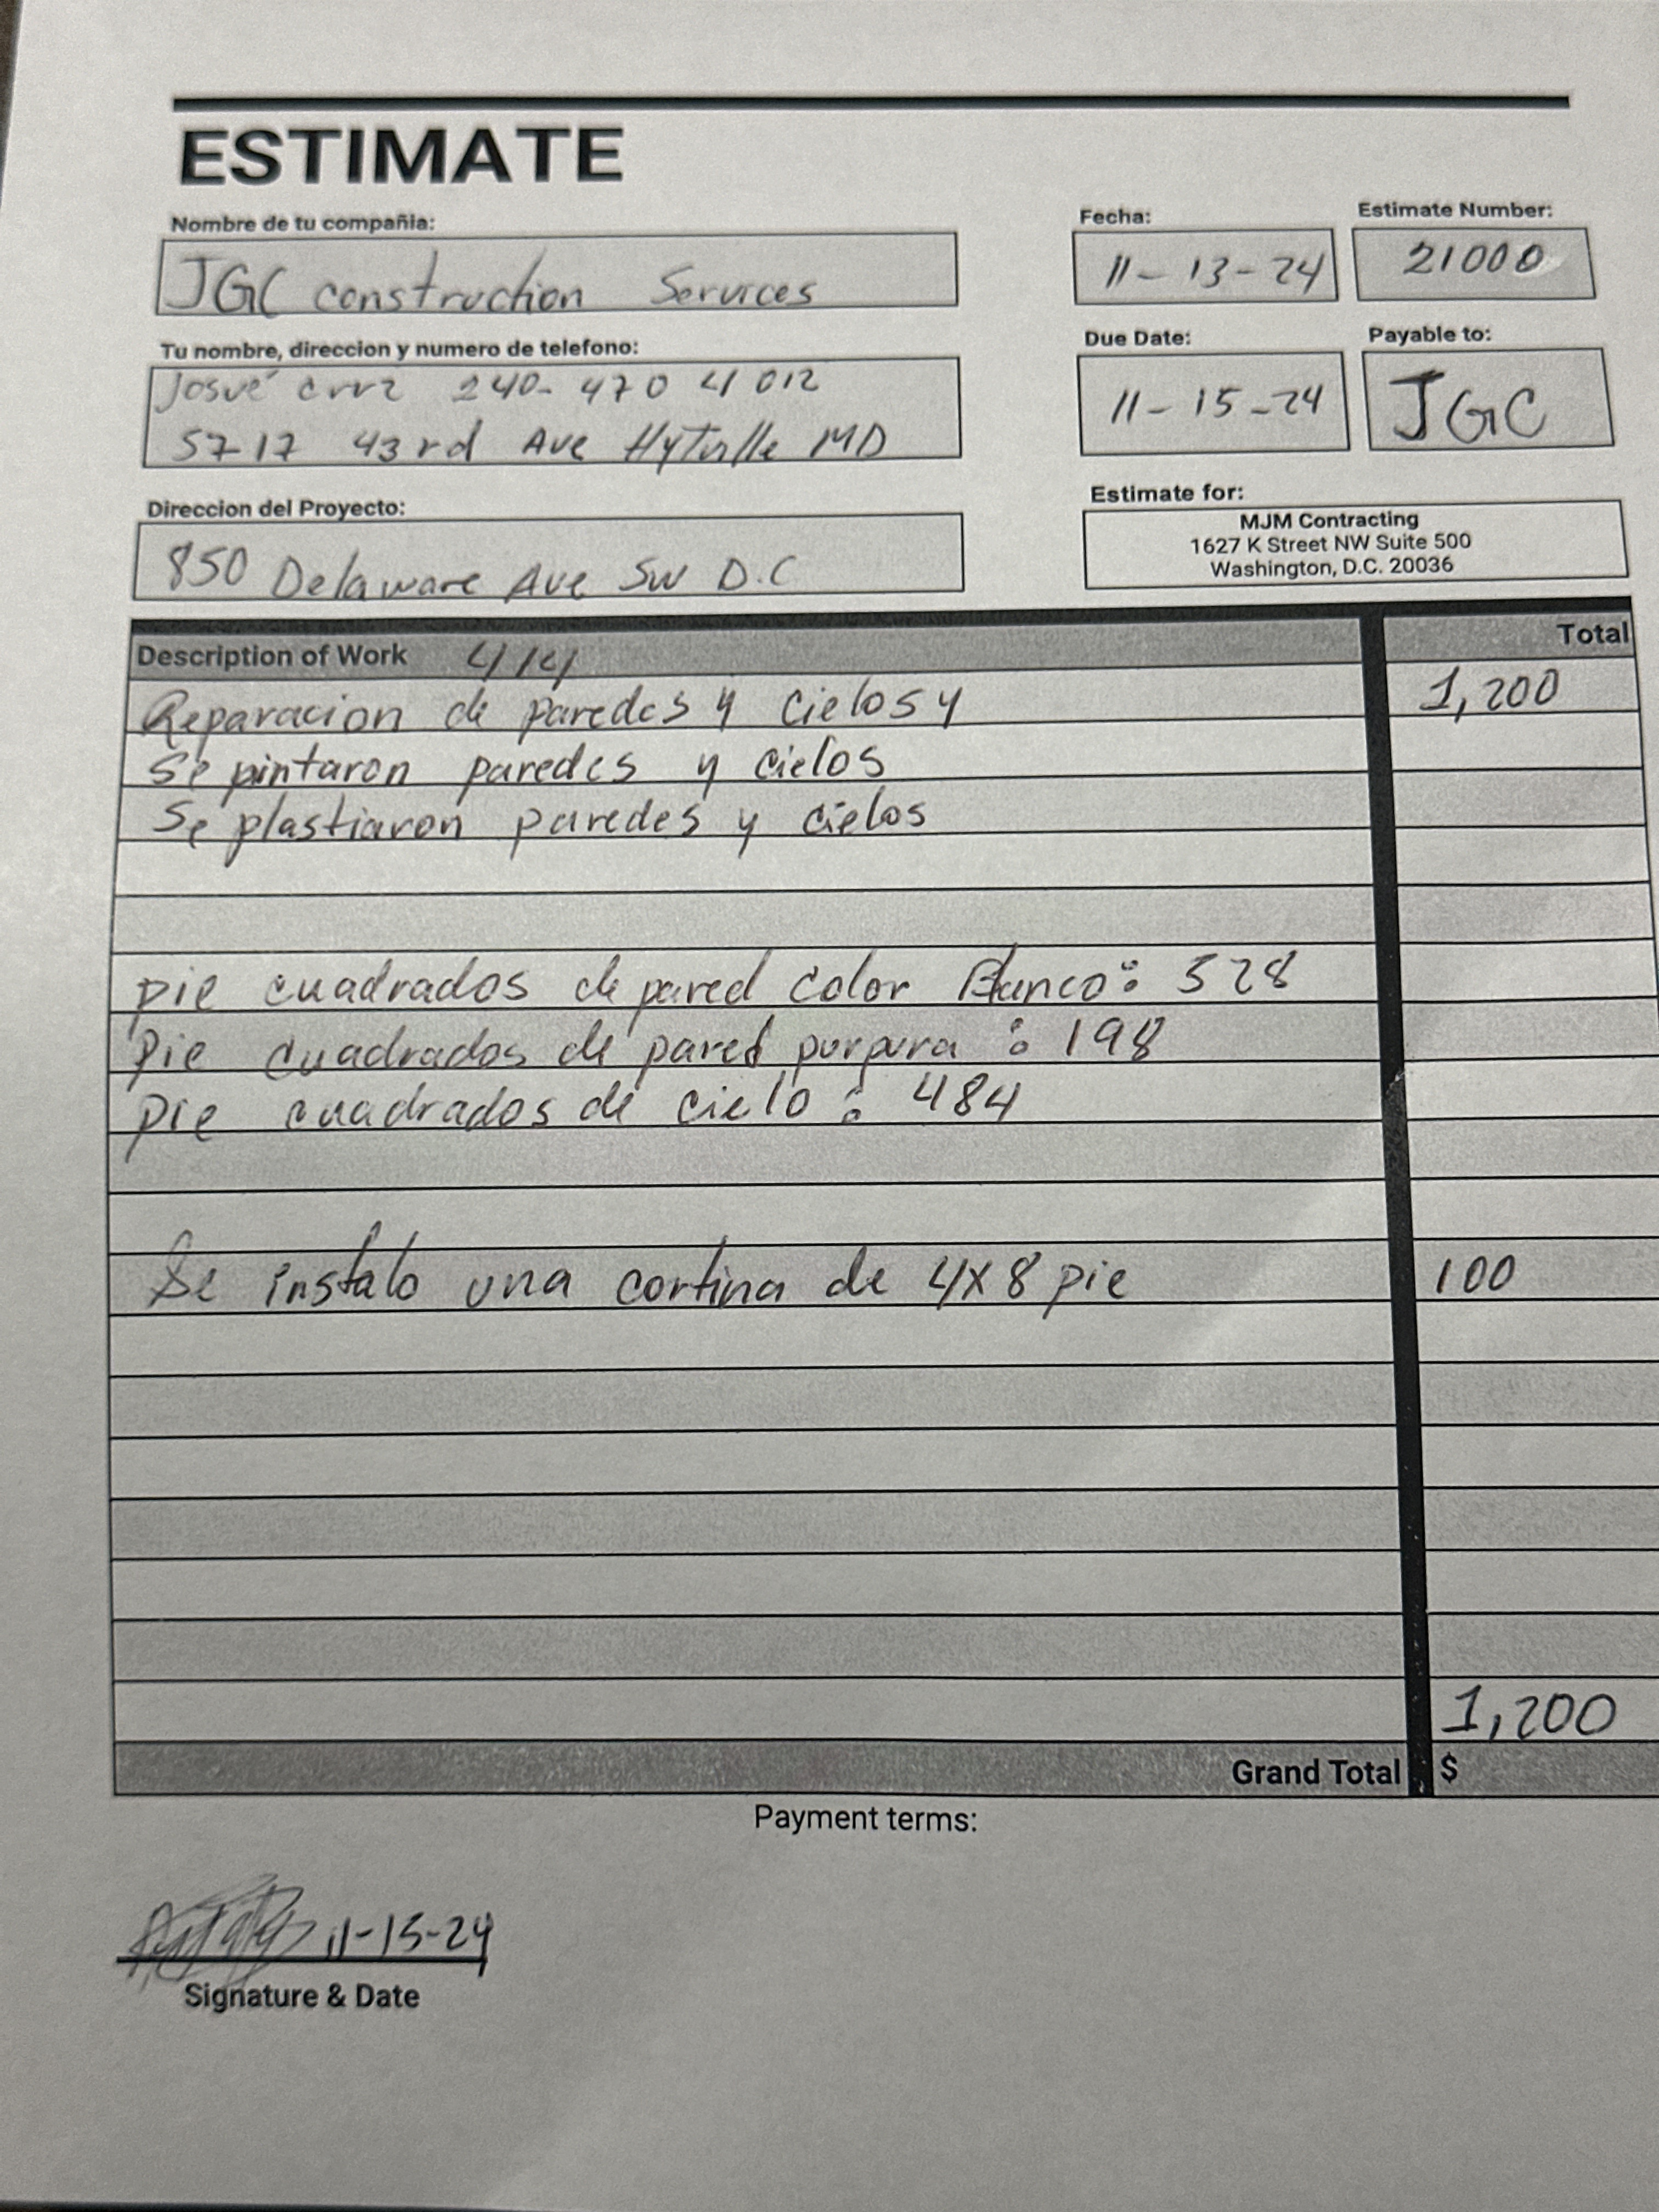 ESTIMATE
Nombre de tu compañia:
JGC construction Services
Fecha:
11-13-24
Estimate Number:
21000
Tu nombre, direccion y numero de telefono:
Josué cruz 240-470 4012
5717 43rd Ave Hytville MD
Due Date:
11-15-24
Payable to:
JGC
Direccion del Proyecto:
850 Delaware Ave SW D.C
Estimate for:
MJM Contracting
1627 K Street NW Suite 500
Washington, D.C. 20036
Description of Work 414 Total
Reparacion de paredes y cielos y 1,200
Se pintaron paredes y cielos
Se plastiaron paredes y cielos
pie cuadrados de pared color Blanco: 528
Pie cuadrados de pared purpura: 198
pie cuadrados de cielo: 484
Se instalo una cortina de 4x8 pie 100
1,200
Grand Total $
Payment terms:
11-15-24
Signature & Date